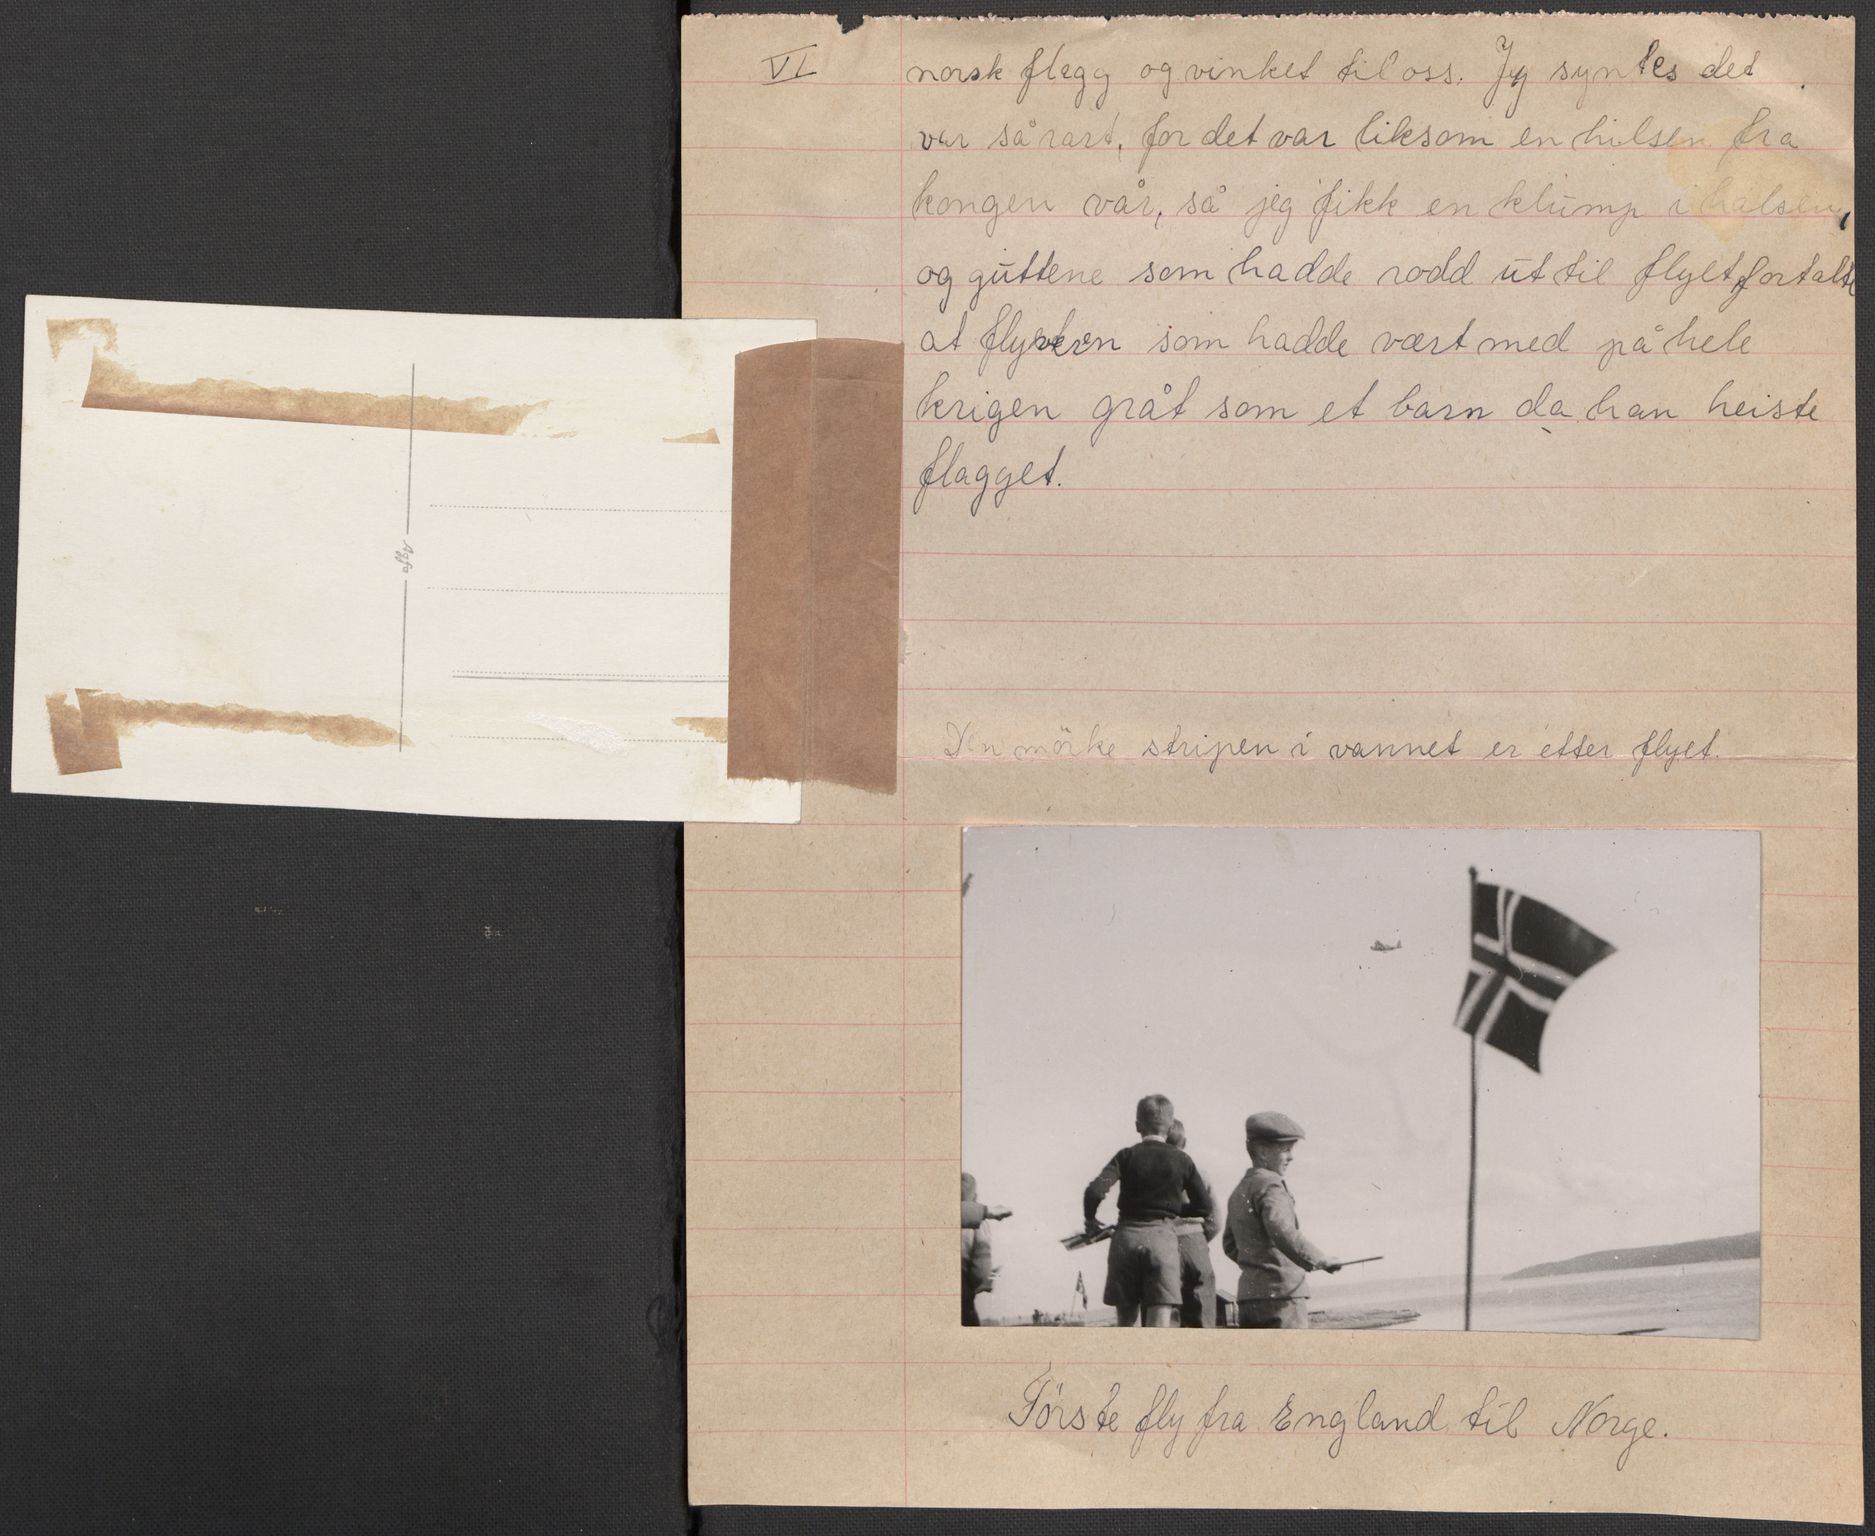 VI
norsk flagg og vinket til oss. Jeg syntes det
var så rart, for det var liksom en hilsen fra
kongen vår, så jeg fikk en klump i halsen,
og guttene som hadde rodd ut til flyet, fortalte
at flyveren som hadde vært med på hele
krigen gråt som et barn da han heiste
flagget.
Agfa
Den mörke stripen i vannet er etter flyet.
Förste fly fra England til Norge.